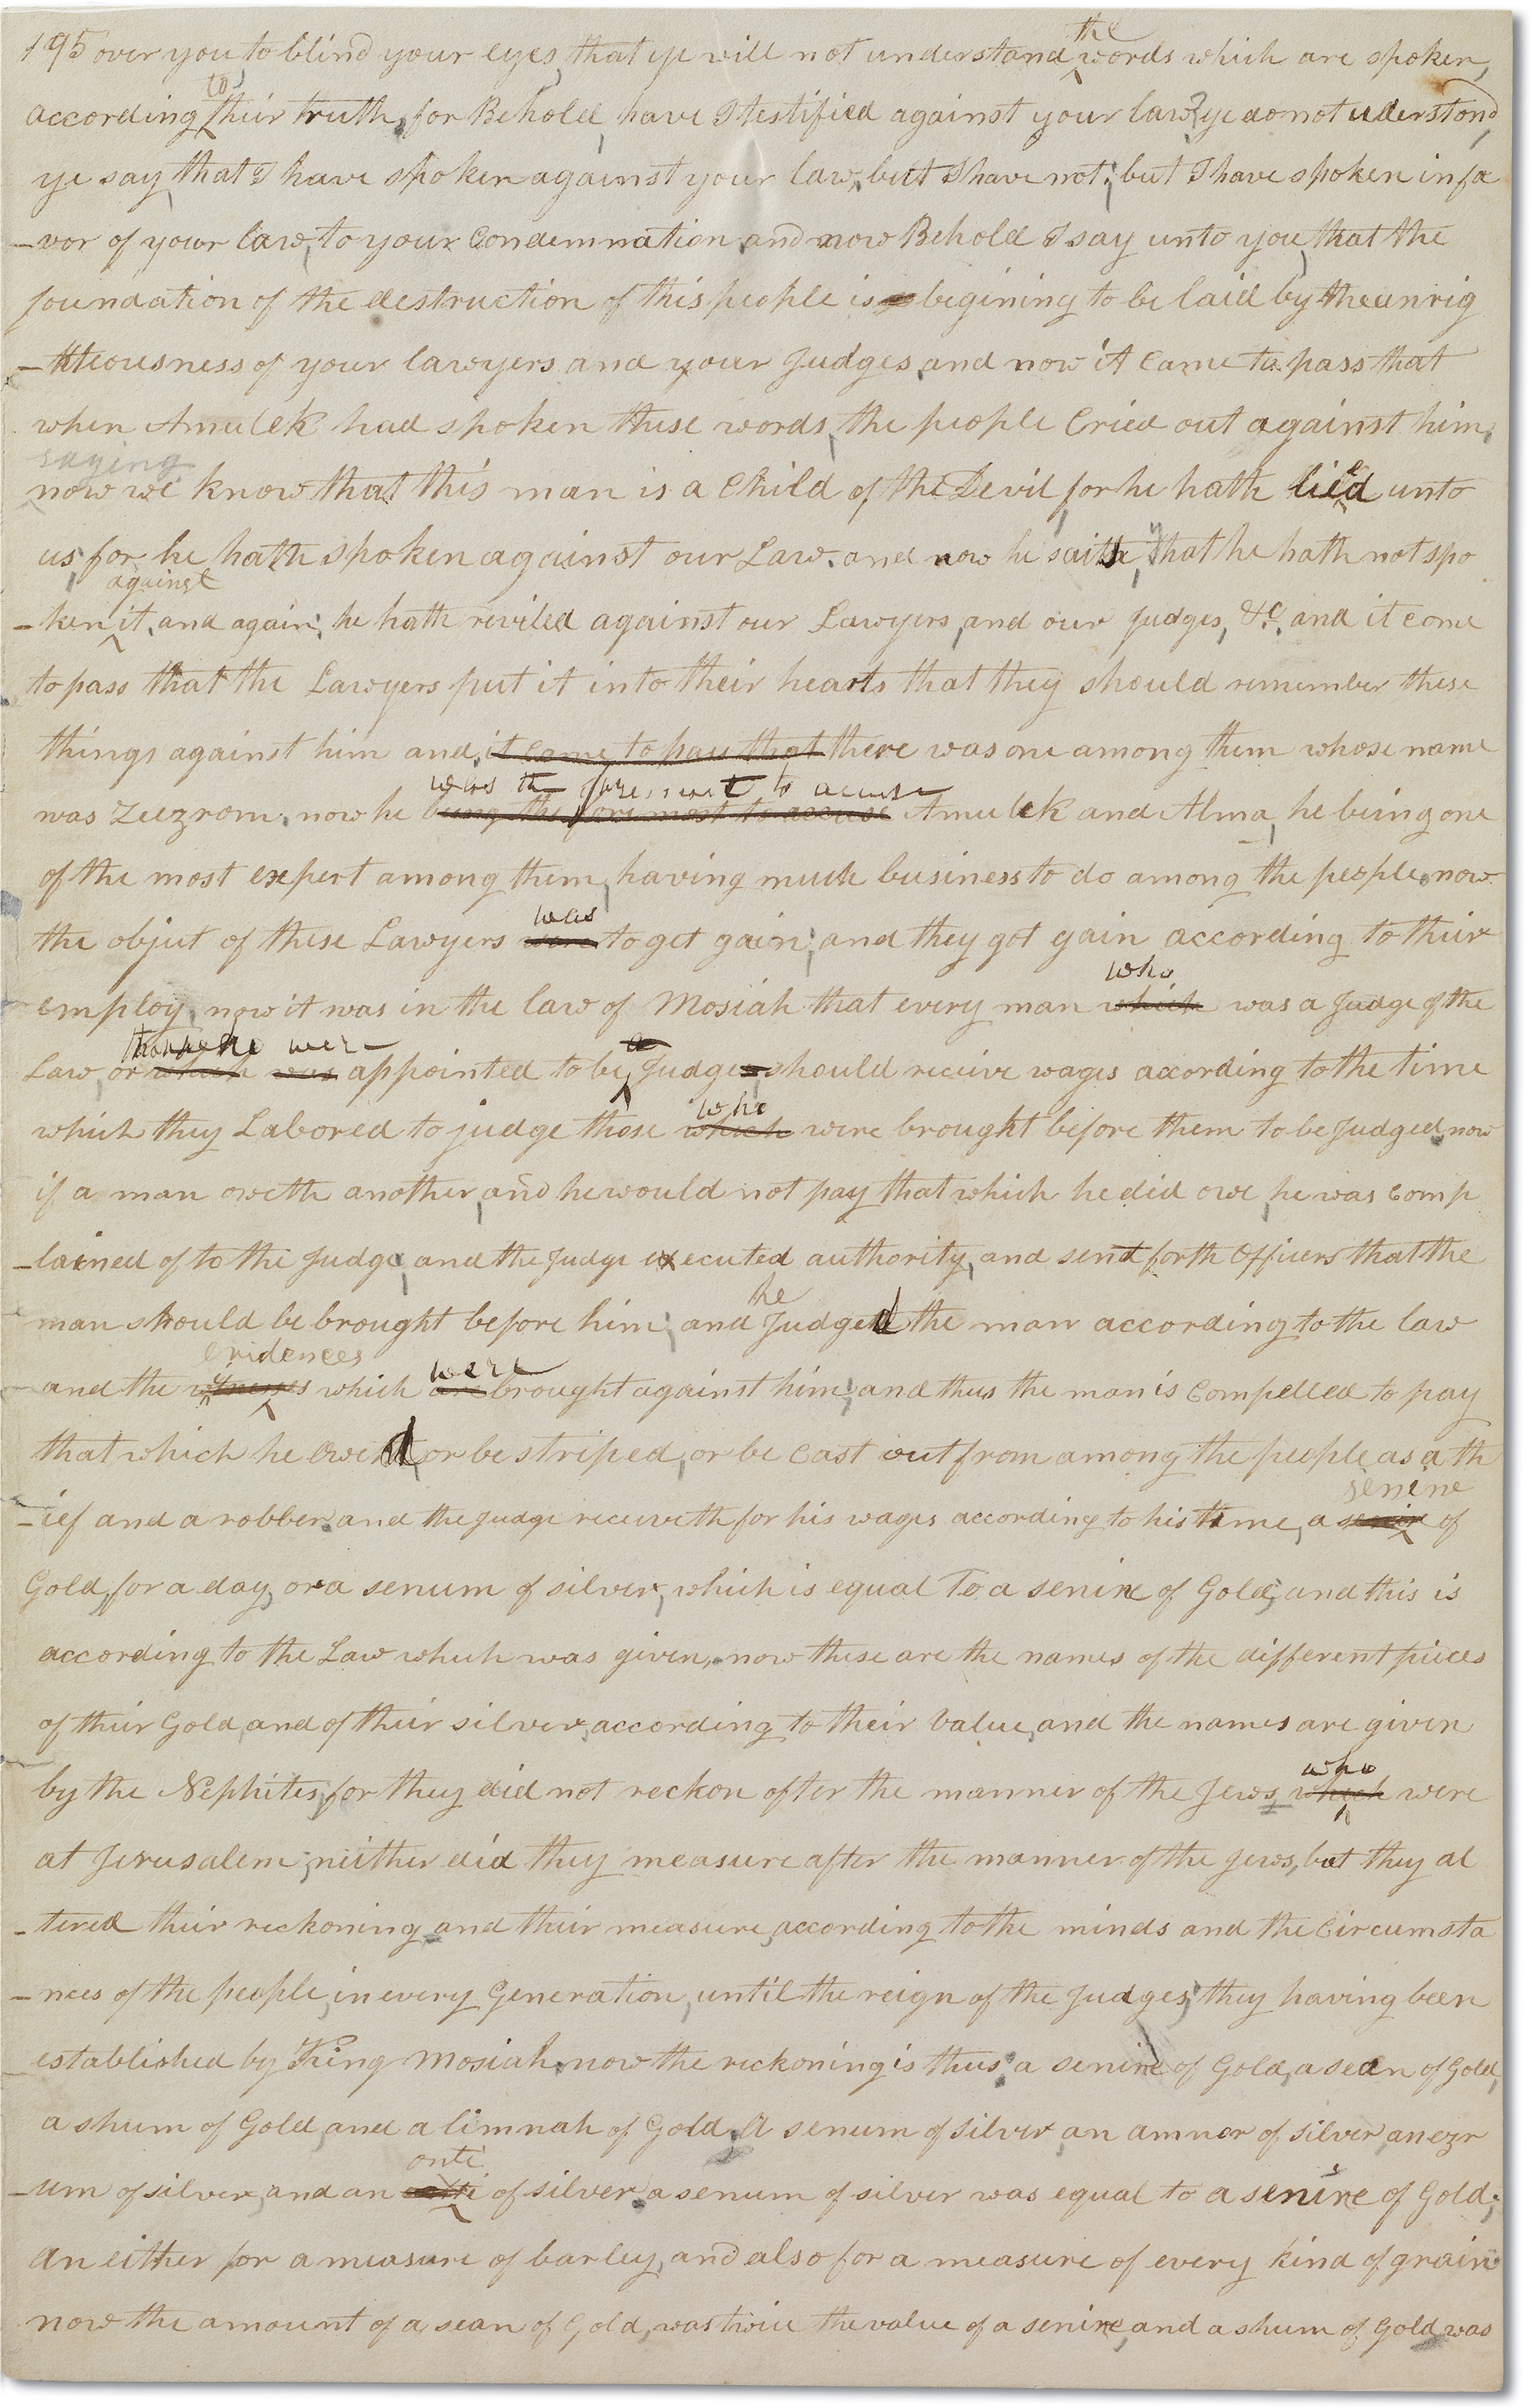 195 over you to blind your eyes, that ye will not understand the words which are spoken,
according to their truth, for Behold, have I testified against your law? ye do not understand,
ye say that I have spoken against your law, but I have not; but I have spoken in fa
-vor of your law, to your Condemnation, and now Behold I say unto you, that the
foundation of the destruction of this people is begining to be laid by the unrig
-hteousness of your lawyers and your Judges, and now it Came to pass that
when Amulek had spoken these words, the people Cried out against him,
saying
now we know that this man is a Child of the Devil, for he hath lied unto
us, for he hath spoken against our Law. and now he saith, that he hath not spo
-ken against it, and again; he hath reviled against our Lawyers, and our Judges, &c. and it came
to pass that the Lawyers put it into their hearts that they should remember these
things against him and, it came to pass that there was one among them whose name
was the foremost to accuse
was Zeezrom. now he being the foremost to accuse Amulek and Alma, he being one
of the most expert among them, having much business to do among the people, now
was
the object of these Lawyers were to get gain; and they got gain according to their
who
employ, now it was in the law of Mosiah that every man which was a Judge of the
those who were a
Law, or which was appointed to be Judges should receive wages according to the time
who
which they Labored to judge those which were brought before them to be Judged, now
if a man oweth another, and he would not pay that which he did owe, he was Comp
-lained of to the Judge, and the Judge executed authority, and sent forth Officers that the
he
man should be brought before him; and Judged the man according to the law
evidences were
and the witnesses which are brought against him; and thus the man is Compelled to pay
that which he Owed, or be striped, or be Cast out from among the people, as a th
senine
-ief and a robber. and the Judge receiveth for his wages according to his time, a of
Gold, for a day, or a senum of silver, which is equal To a senine of Gold; and this is
according to the Law which was given, now these are the names of the different pieces
of their Gold, and of their silver, according to their value, and the names are given
who
by the Nephites, for they did not reckon after the manner of the Jews, which were
at Jerusalem; neither did they measure after the manner of the Jews, but they al
-tered their reckoning and their measure, according to the minds and the Circumsta
-nces of the people, in every Generation, until the reign of the Judges; they having been
established by King Mosiah. now the reckoning is thus, a senine of Gold, a sean of Gold,
a shum of Gold, and a limnah of Gold. A senum of silver, an amnor of silver, an ezr
onti
-um of silver, and an of silver. a senum of silver was equal to a senine of Gold;
An either for a measure of barley, and also for a measure of every kind of grain
now the amount of a sean of Gold, was twice the value of a senine, and a shum of Gold was